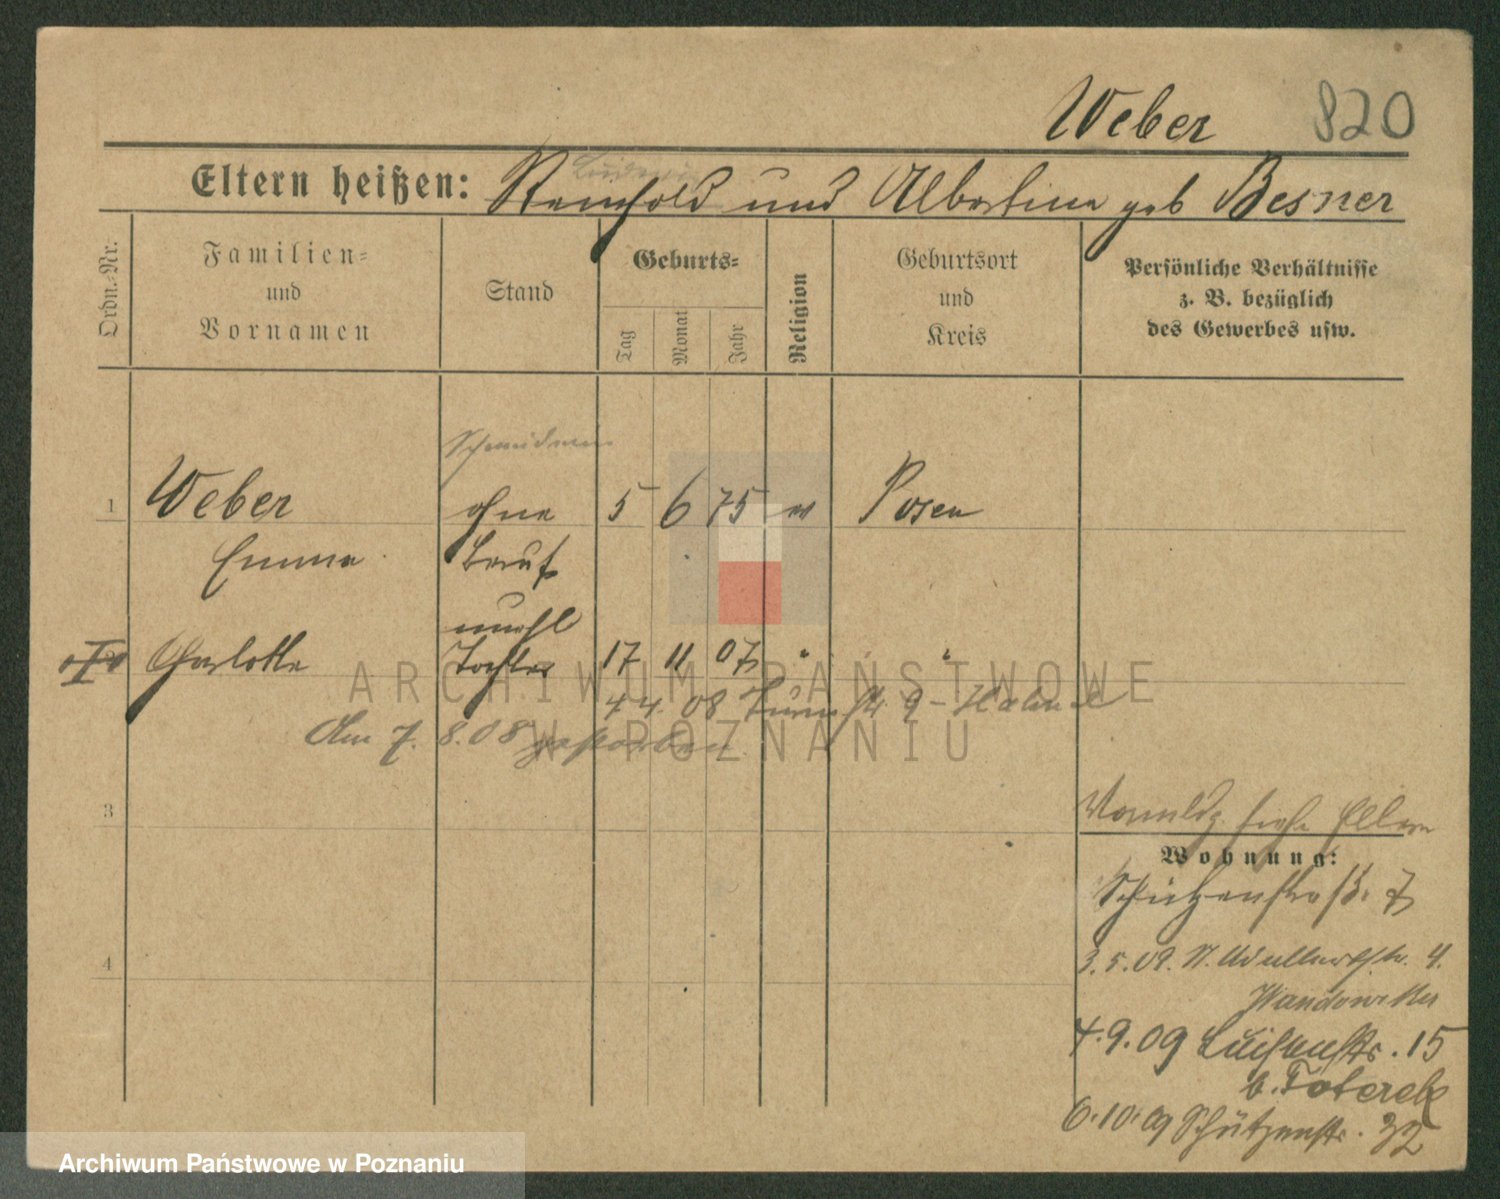 Weber 820
Eltern heißen: Reinhold und Albertine geb Besner
Ordn.-Nr.
Familien-
und
Vornamen
Stand
Geburts-
Tag
Monat
Jahr
Religion
Geburtsort
und
Kreis
Persönliche Verhältnisse
z. B. bezüglich
des Gewerbes usw.
1 Weber ohne 5 6 75 Posen
Emma Beruf
unehl
Charlotte Tochter 17 11 07 " "
4. 08 9
Am 7. 8. 08 gestorben
3
siehe Eltern
Wohnung:
Schützenstraß. 7
4
3. 5. 09. 4.
7. 9. 09 Luisenstr. 15
b. Toterek
6. 10. 09 Schützenstr. 32
ARCHIWUM PAŃSTWOWE
W POZNANIU
Archiwum Państwowe w Poznaniu